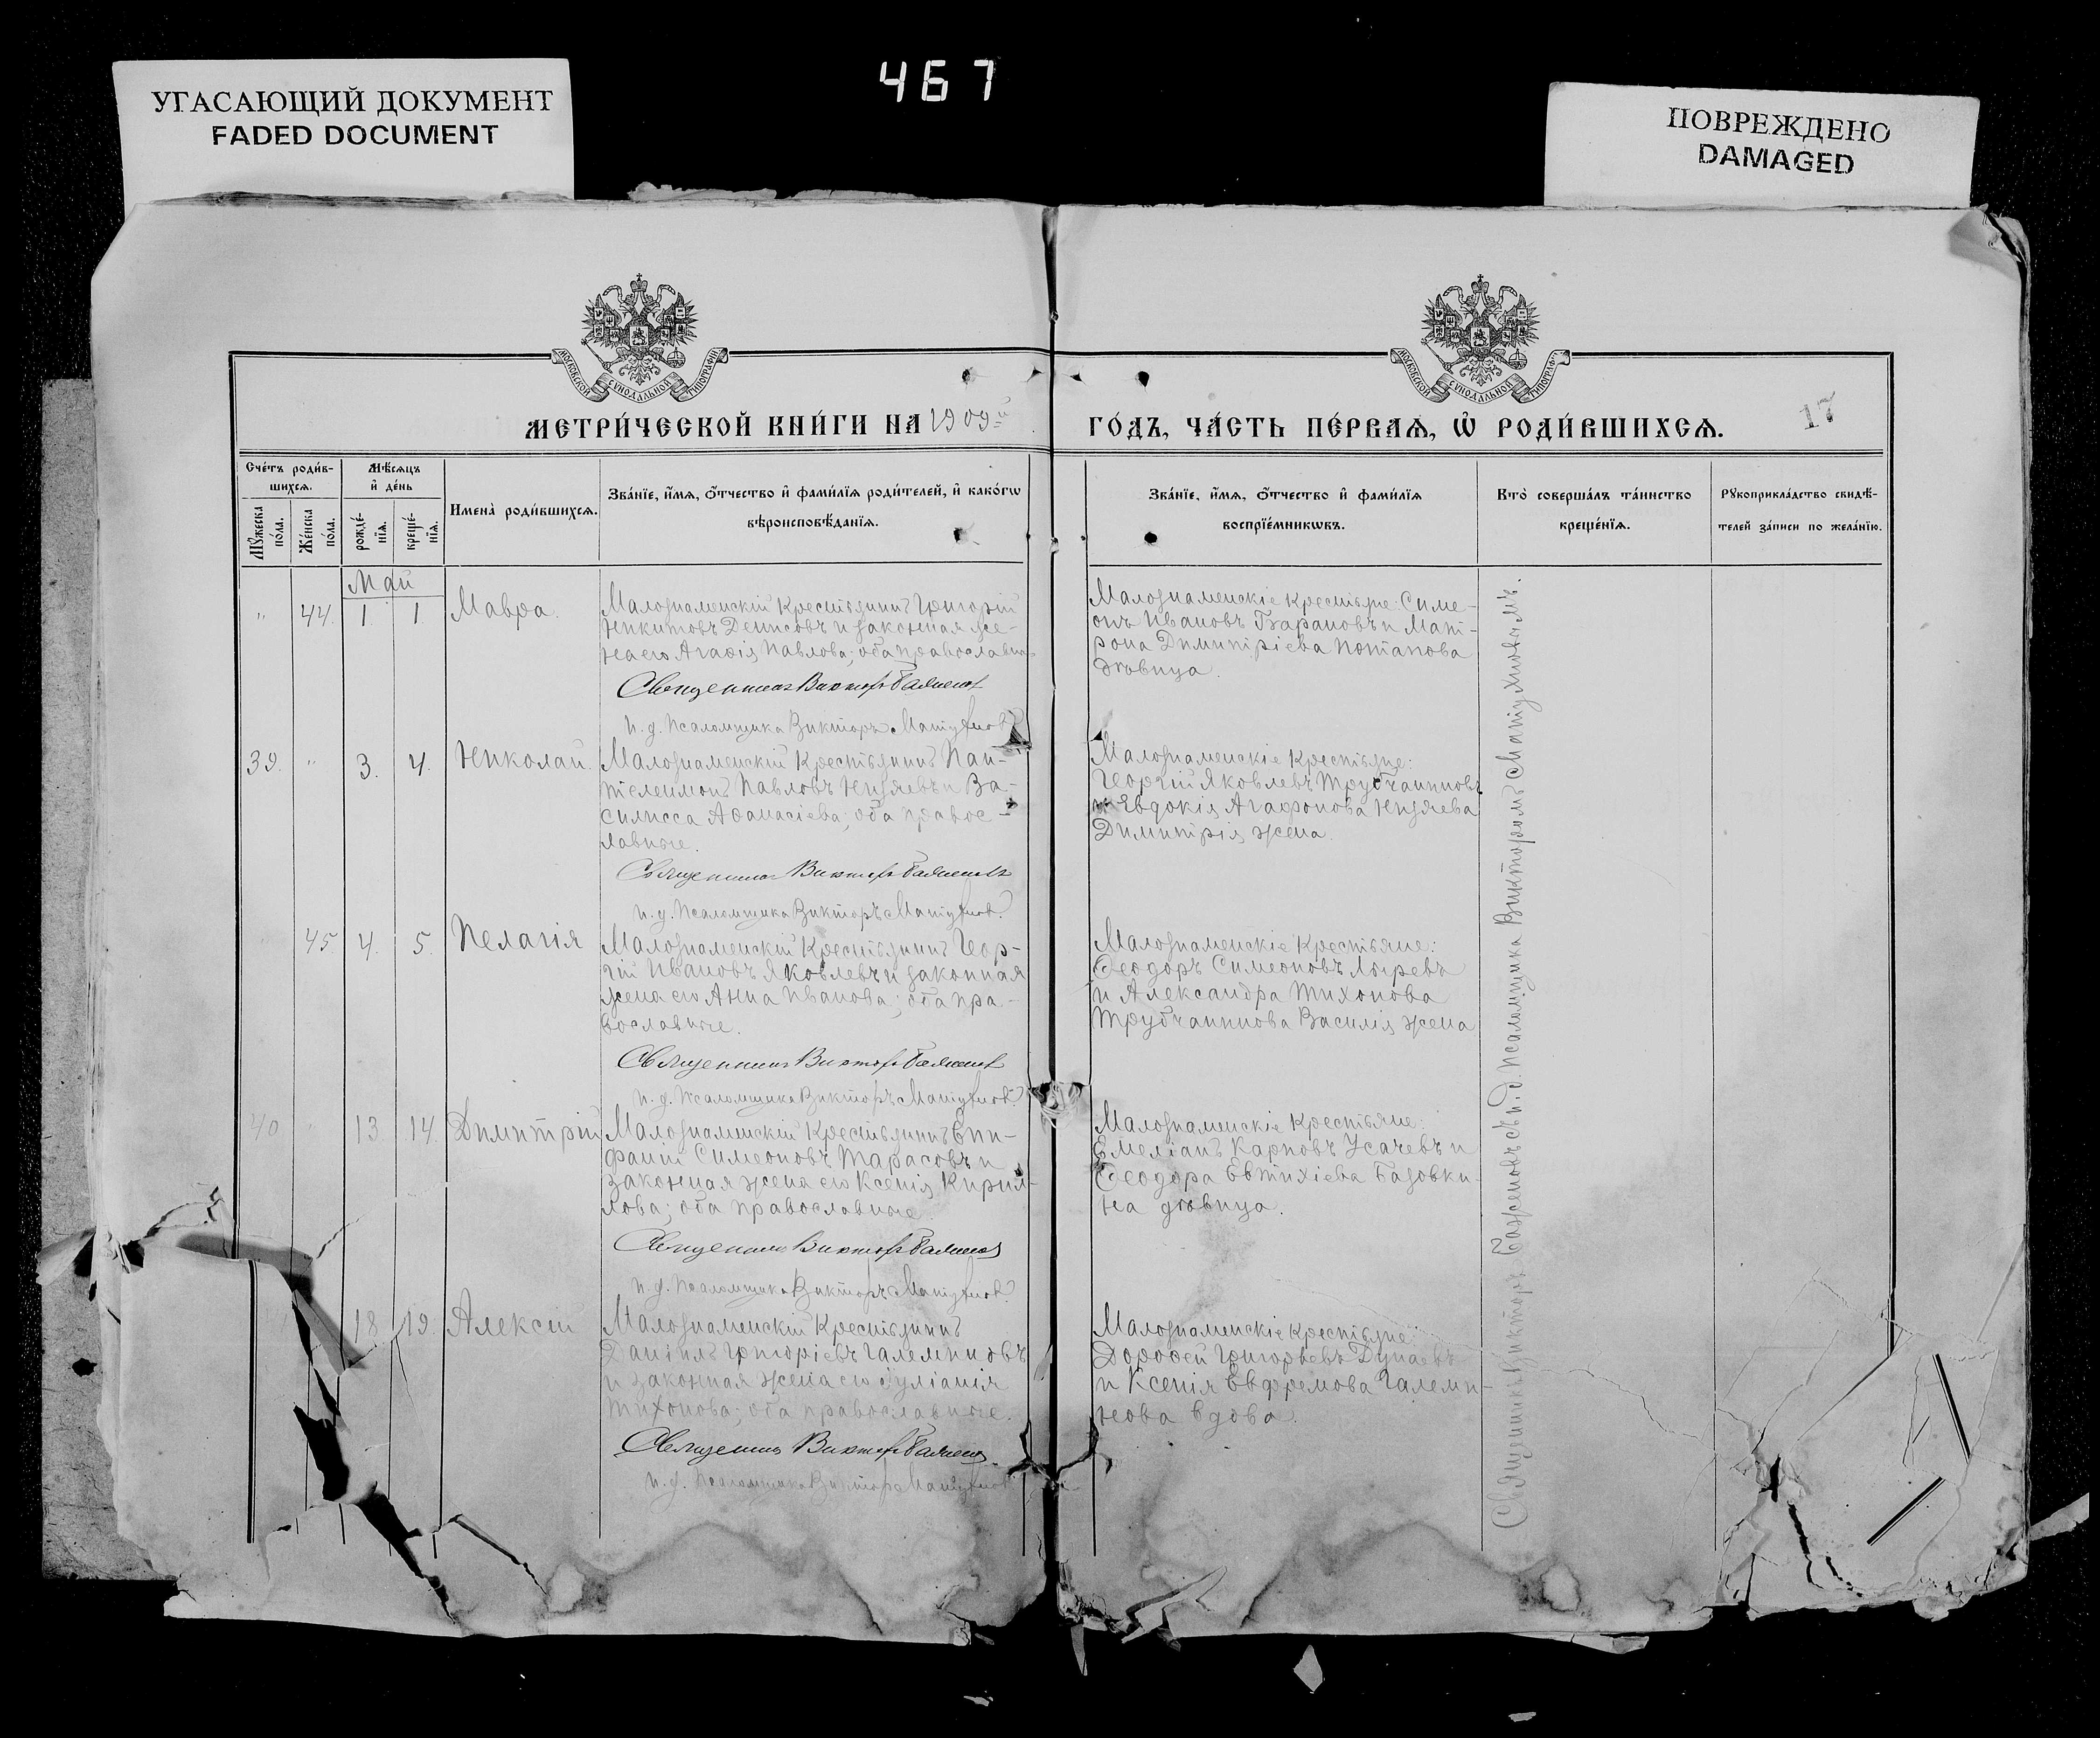 467
УГАСАЮЩИЙ ДОКУМЕНТ
FADED DOCUMENT
ПОВРЕЖДЕНО
DAMAGED
МОСКОВСКОЙ СѴНОДАЛЬНОЙ ТИПОГРАФІИ
МОСКОВСКОЙ СѴНОДАЛЬНОЙ ТИПОГРАФІИ
МЕТРИ́ЧЕСКОЙ КНИ́ГИ НА 1909й
ГО́ДЪ, ЧА́СТЬ ПЕ́РВАѦ, Ѡ҆ РОДИ́ВШИХСѦ.
17
Сче́тъ роди́в-
шихсѧ.
Мꙋ́жеска по́ла.
Же́нска по́ла.
Мѣ́сѧцъ
и҆ де́нь
рожде́-
нїѧ.
креще́-
нїѧ.
Имена̀ роди́вшихсѧ.
Зва́нїе, и҆́мѧ, ѻ҆́тчество и҆ фами́лїѧ роди́телей, и҆ како́гѡ
вѣроисповѣ́данїѧ.
Зва́нїе, и҆́мѧ, ѻ҆́тчество и҆ фами́лїѧ
воспрїе́мникѡвъ.
Кто̀ соверша́лъ та́инство
креще́нїѧ.
Рꙋкоприкла́дство свидѣ́-
телей за́писи по жела́нїю.
Май
" 44. 1. 1. Мавра.
Малознаменскій Крестьянинъ Григорій
Никитовъ Денисовъ и законная же-
на его Агафія Павлова; оба православные
Священникъ Викторъ Баженовъ
И. д. Псаломщика Викторъ Матухновъ.
Малознаменскіе крестьяне: Симе-
онъ Ивановъ Барановъ и Мат-
рона Димитріева Потапова
дѣвица.
39. " 3. 4. Николай.
Малознаменскій Крестьянинъ Пан-
телеимонъ Павловъ Низяевъ и Ва-
силисса Аѳанасіева; оба правос-
лавные.
Священникъ Викторъ Баженовъ
И. д. Псаломщика Викторъ Матухновъ.
Малознаменскіе Крестьяне:
Георгій Яковлевъ Трубчаниновъ
и Евдокія Агафонова Низяева
Димитрія жена.
45. 4. 5. Пелагія
Малознаменскій Крестьянинъ Геор-
гій Ивановъ Яковлевъ и законная
жена его Анна Иванова; оба пра-
вославные.
Священникъ Викторъ Баженовъ
И. д. Псаломщика Викторъ Матухновъ.
Малознаменскіе Крестьяне:
Ѳеодоръ Симеоновъ
и Александра Тихонова
Трубчанинова Василія жена
40 " 13 14. Димитрій
Малознаменскій Крестьянинъ Епи-
фаній Симеоновъ Тарасовъ и
законная жена его Ксенія Кирил-
лова; оба православные.
Священникъ Викторъ Баженовъ
И. д. Псаломщика Викторъ Матухновъ.
Малознаменскіе Крестьяне:
Емеліанъ Карповъ Усачевъ и
Ѳеодора Евтихіева Базовки-
на дѣвица.
18 19. Алексій
Малознаменскій Крестьянинъ
Даніилъ Григоріевъ Галеминовъ
и законная жена его Іуліанія
Тихонова; оба православные.
Священникъ Викторъ Баженовъ
И. д. Псаломщика Викторъ Матухновъ
Малознаменскіе крестьяне:
Дороѳей Григорьевъ Дунаевъ
и Ксенія Евфремова Галеми-
нова вдова.
Священникъ Викторъ Баженовъ съ и. д. Псаломщика Викторомъ Матухновымъ.